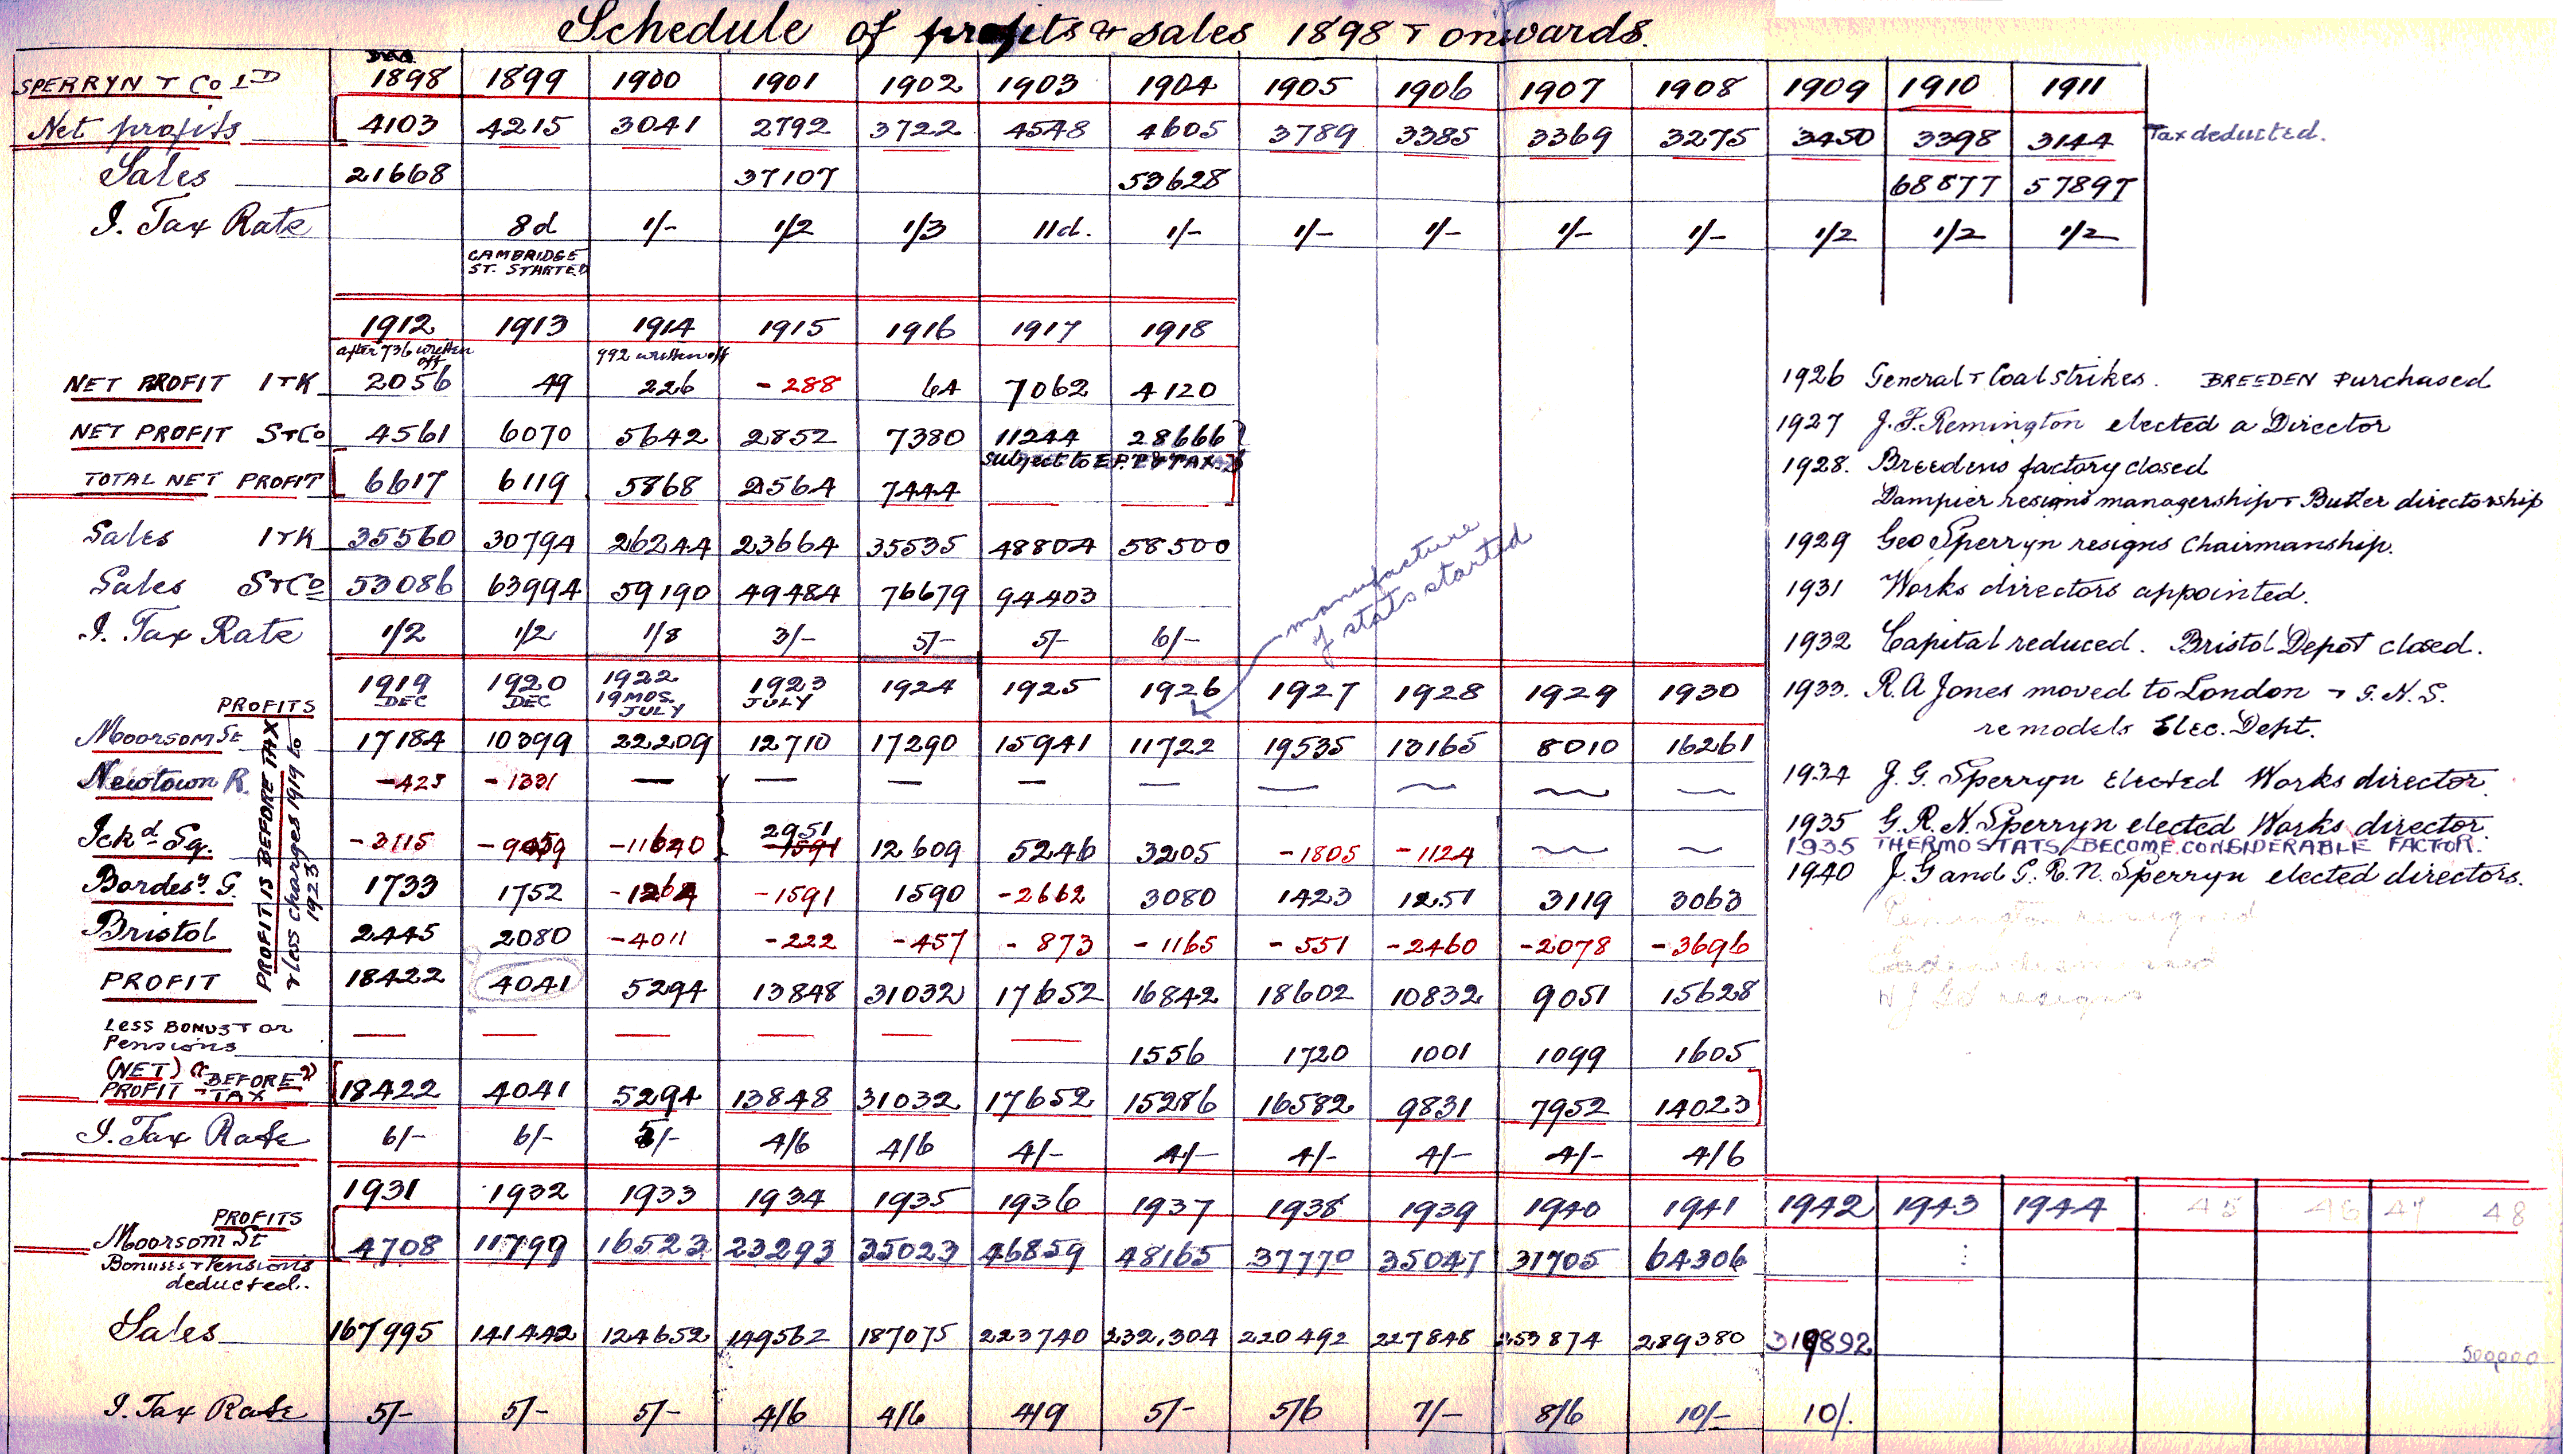 Schedule of profits & sales 1898 & onwards.
SPERRYN & Co LD 1898 1899 1900 1901 1902 1903 1904 1905 1906 1907 1908 1909 1910 1911
Net profits 4103 4215 3041 2792 3722 4548 4605 3789 3385 3369 3275 3450 3398 3144 Tax deducted.
Sales 21668 37107 53628 68877 57897
I. Tax Rate 8d 1/- 1/2 1/3 11d. 1/- 1/- 1/- 1/- 1/- 1/2 1/2 1/2
CAMBRIDGE
ST. STARTED
1912 1913 1914 1915 1916 1917 1918
after 736 written off 992 written off
NET PROFIT I & K 2056 49 226 -288 64 7062 4120
NET PROFIT S & Co 4561 6070 5642 2852 7380 11244 28666
Subject to E.P.T & TAX
TOTAL NET PROFIT 6617 6119 5868 2564 7444
Sales I & K 35560 30794 26244 23664 35535 48804 58500
Sales S & Co 53086 63994 59190 49484 76679 94403
I. Tax Rate 1/2 1/2 1/8 3/- 5/- 5/- 6/-
manufacture
of stats started
1926 General & Coal Strikes. BREEDEN Purchased
1927 J. F. Remington elected a Director
1928. Breedens factory closed
Dampier resigns managership & Butler directorship
1929 Geo Sperryn resigns Chairmanship.
1931 Works directors appointed.
1932 Capital reduced. Bristol Depot closed.
1933. R. A Jones moved to London & G. N. S.
remodels Elec. Dept.
1934 J. G. Sperryn Elected Works director.
1935 G. R. N. Sperryn elected Works director.
1935 THERMOSTATS BECOME CONSIDERABLE FACTOR.
1940 J. G and G. R. N. Sperryn elected directors.
PROFITS 1919 DEC 1920 DEC 1922 19 MOS. JULY 1923 JULY 1924 1925 1926 1927 1928 1929 1930
PROFIT IS BEFORE TAX
& less charges 1919 to
1923
Moorsom St 17184 10399 22209 12710 17290 15941 11722 19535 13165 8010 16261
Newtown R. -425 -1331 — — — — — — — — —
Ickd Sq. -3115 -9059 -11640 2951 -1591 12609 5246 3205 -1805 -1124 — —
Bordesy. G. 1733 1752 -1264 -1591 1590 -2662 3080 1423 1251 3119 3063
Bristol 2445 2080 -4011 -222 -457 -873 -1165 -551 -2460 -2078 -3696
PROFIT 18422 4041 5294 13848 31032 17652 16842 18602 10832 9051 15628
Less BONUS & or
Pensions — — — — — — 1556 1720 1001 1099 1605
(NET) ("BEFORE")
PROFIT - TAX 18422 4041 5294 13848 31032 17652 15286 16582 9831 7952 14023
I. Tax Rate 6/- 6/- 5/- 4/6 4/6 4/- 4/- 4/- 4/- 4/- 4/6
1931 1932 1933 1934 1935 1936 1937 1938 1939 1940 1941 1942 1943 1944 45 46 47 48
PROFITS
Moorsom St 4708 11799 16523 23293 35023 46859 48165 37770 35047 31705 64306
Bonuses & Pensions
deducted..
Sales 167995 141442 124652 149562 187075 223740 232,304 220492 227848 253874 289380 319892 500,000
I. Tax Rate 5/- 5/- 5/- 4/6 4/6 4/9 5/- 5/6 7/- 8/6 10/- 10/.